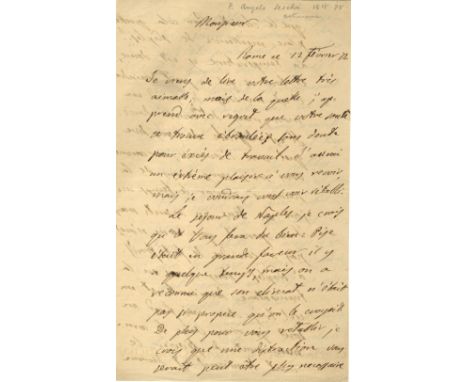 P. Angelo Secchi 1818 78
Monsieur
Rome ce 12 février 72
Je viens de lire votre lettre très
aimable, mais de la quelle j'ap
prend avec regret que votre santé
se trouve ébranlée sans doute
pour excès de travail. J'aurai
un extrême plaisir à vous revoir,
mais je voudrais vous voir rétabli.
Le séjour de Naples je crois
qu'il vous fera du bien: Pise
était en grande faveur il y
a quelque temps mais on a
reconnu que son climat n'était
pas si propice qu'on le croyait
de plus pour vous rétablir je
crois que une distraction vous
serait peut être plus necessaire